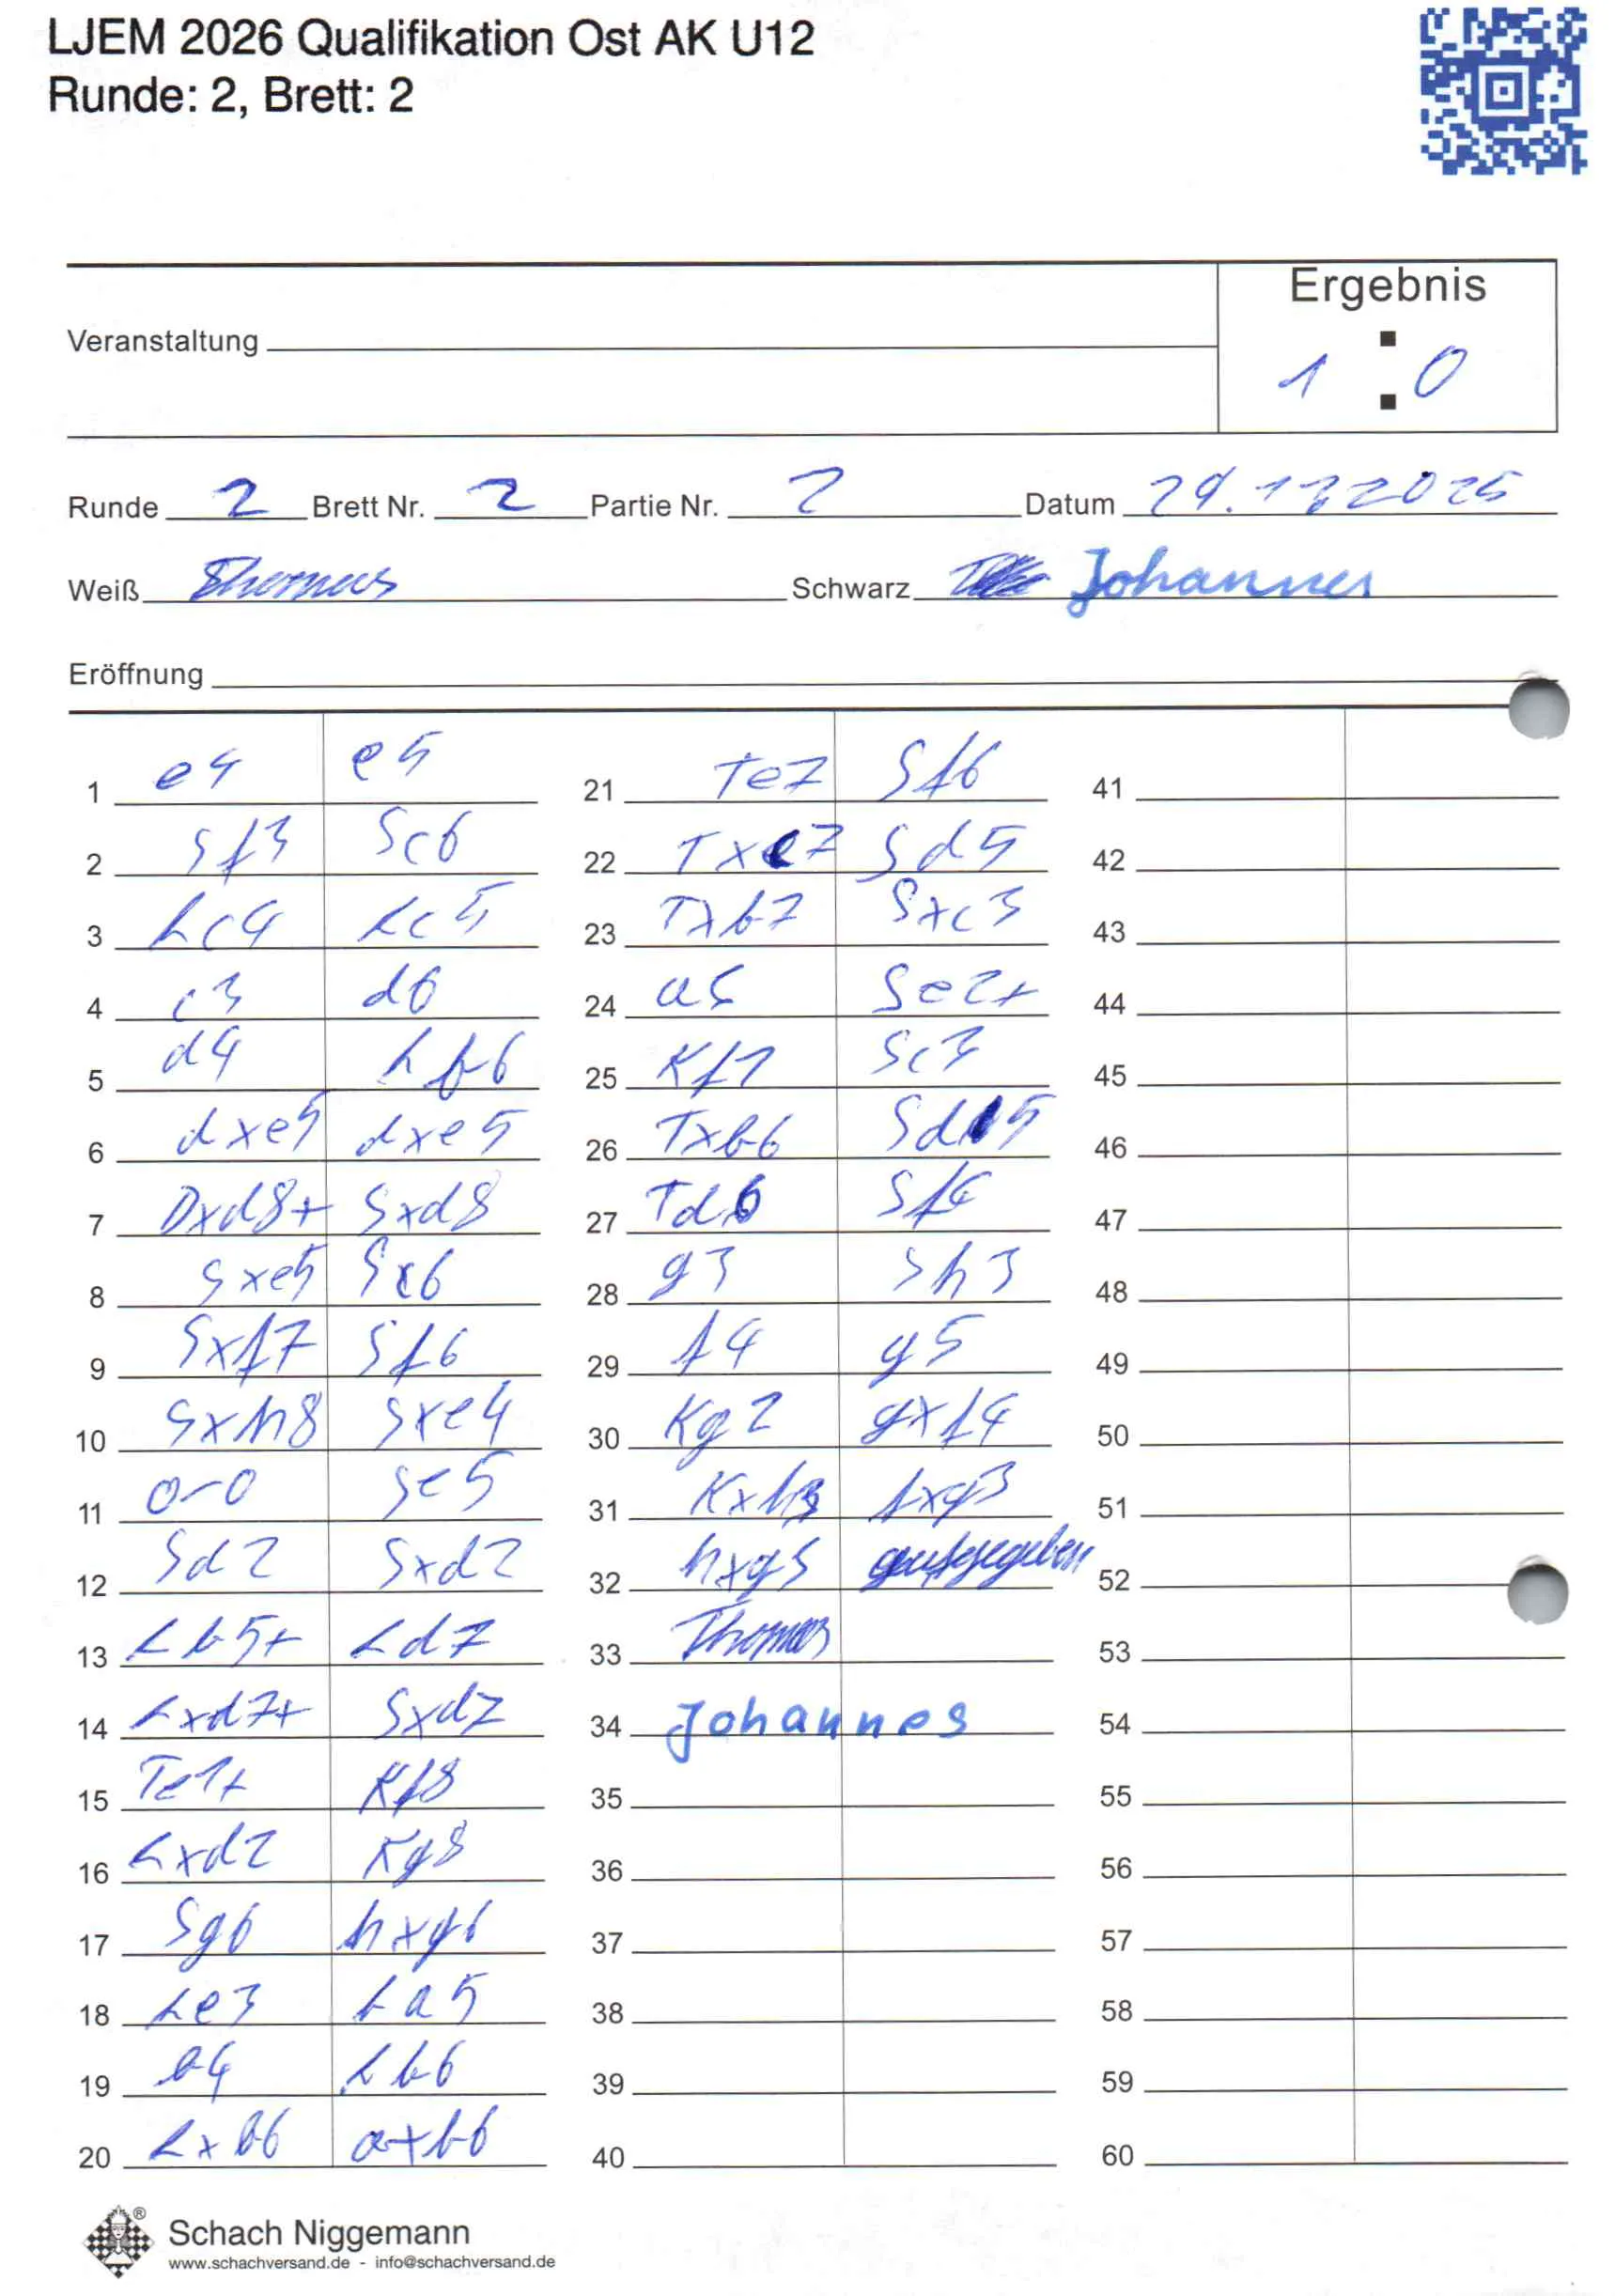 LJEM 2026 Qualifikation Ost AK U12
Runde: 2, Brett: 2
Ergebnis
Veranstaltung
1 : 0
Runde 2 Brett Nr. 2 Partie Nr. 2 Datum 29.12.2025
Weiß Thomas Schwarz Johannes
Eröffnung
1 e4 e5
2 Sf3 Sc6
3 Lc4 Lc5
4 c3 d6
5 d4 Lb6
6 dxe5 dxe5
7 Dxd8+ Sxd8
8 Sxe5 Sc6
9 Sxf7 Sf6
10 Sxh8 Sxe4
11 0-0 Se5
12 Sd2 Sxd2
13 Lb5+ Ld7
14 Lxd7+ Sxd7
15 Te1+ Kf8
16 Lxd2 Kg8
17 Sg6 hxg6
18 Le3 La5
19 b4 Lb6
20 Lxb6 axb6
21 Te7 Sf6
22 Txc7 Sd5
23 Txb7 Sxc3
24 a4 Se2+
25 Kf1 Sc3
26 Txb6 Sd5
27 Td6 Sf4
28 g3 Sh3
29 f4 g5
30 Kg2 gxf4
31 Kxh3 fxg3
32 hxg3 aufgegeben
33 Thomas
34 Johannes
35
36
37
38
39
40
41
42
43
44
45
46
47
48
49
50
51
52
53
54
55
56
57
58
59
60
Schach Niggemann
www.schachversand.de - info@schachversand.de